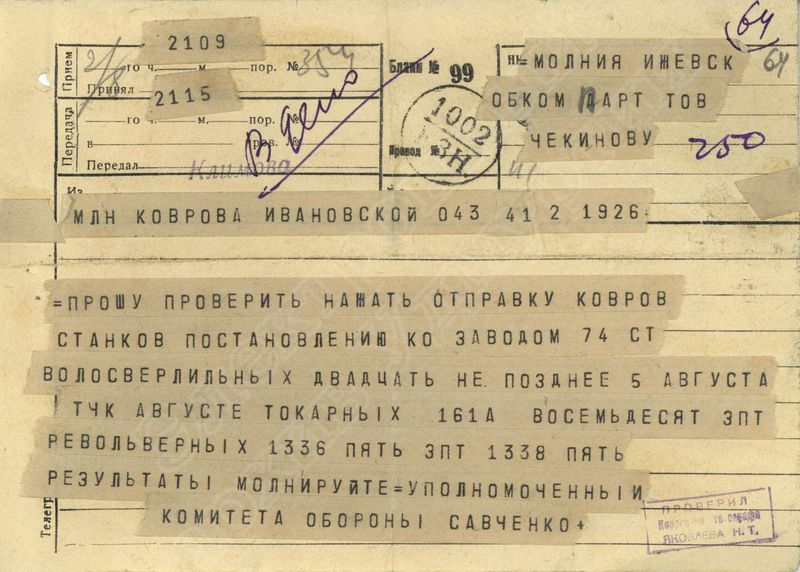 2109
64
Прием
2/8
го ч. м. пор. № 354
Бланк № 99
=МОЛНИЯ ИЖЕВСК
64
Принял
2115
1002
ОБКОМ ПАРТ ТОВ
Передача
го ч. м. пор. №
ЗН.
ЧЕКИНОВУ
250
в пров. №
Провод №
Передал
Климова
Из
МЛН КОВРОВА ИВАНОВСКОЙ 043 41 2 1926=
=ПРОШУ ПРОВЕРИТЬ НАЖАТЬ ОТПРАВКУ КОВРОВ
СТАНКОВ ПОСТАНОВЛЕНИЮ КО ЗАВОДОМ 74 СТ
ВОЛОСВЕРЛИЛЬНЫХ ДВАДЦАТЬ НЕ ПОЗДНЕЕ 5 АВГУСТА
ТЧК АВГУСТЕ ТОКАРНЫХ 161А ВОСЕМЬДЕСЯТ ЗПТ
РЕВОЛЬВЕРНЫХ 1336 ПЯТЬ ЗПТ 1338 ПЯТЬ
РЕЗУЛЬТАТЫ МОЛНИРУЙТЕ=УПОЛНОМОЧЕННЫЙ
КОМИТЕТА ОБОРОНЫ САВЧЕНКО+
Телегр
ПРОВЕРИЛ
ЯКОВЛЕВА Н. Т.